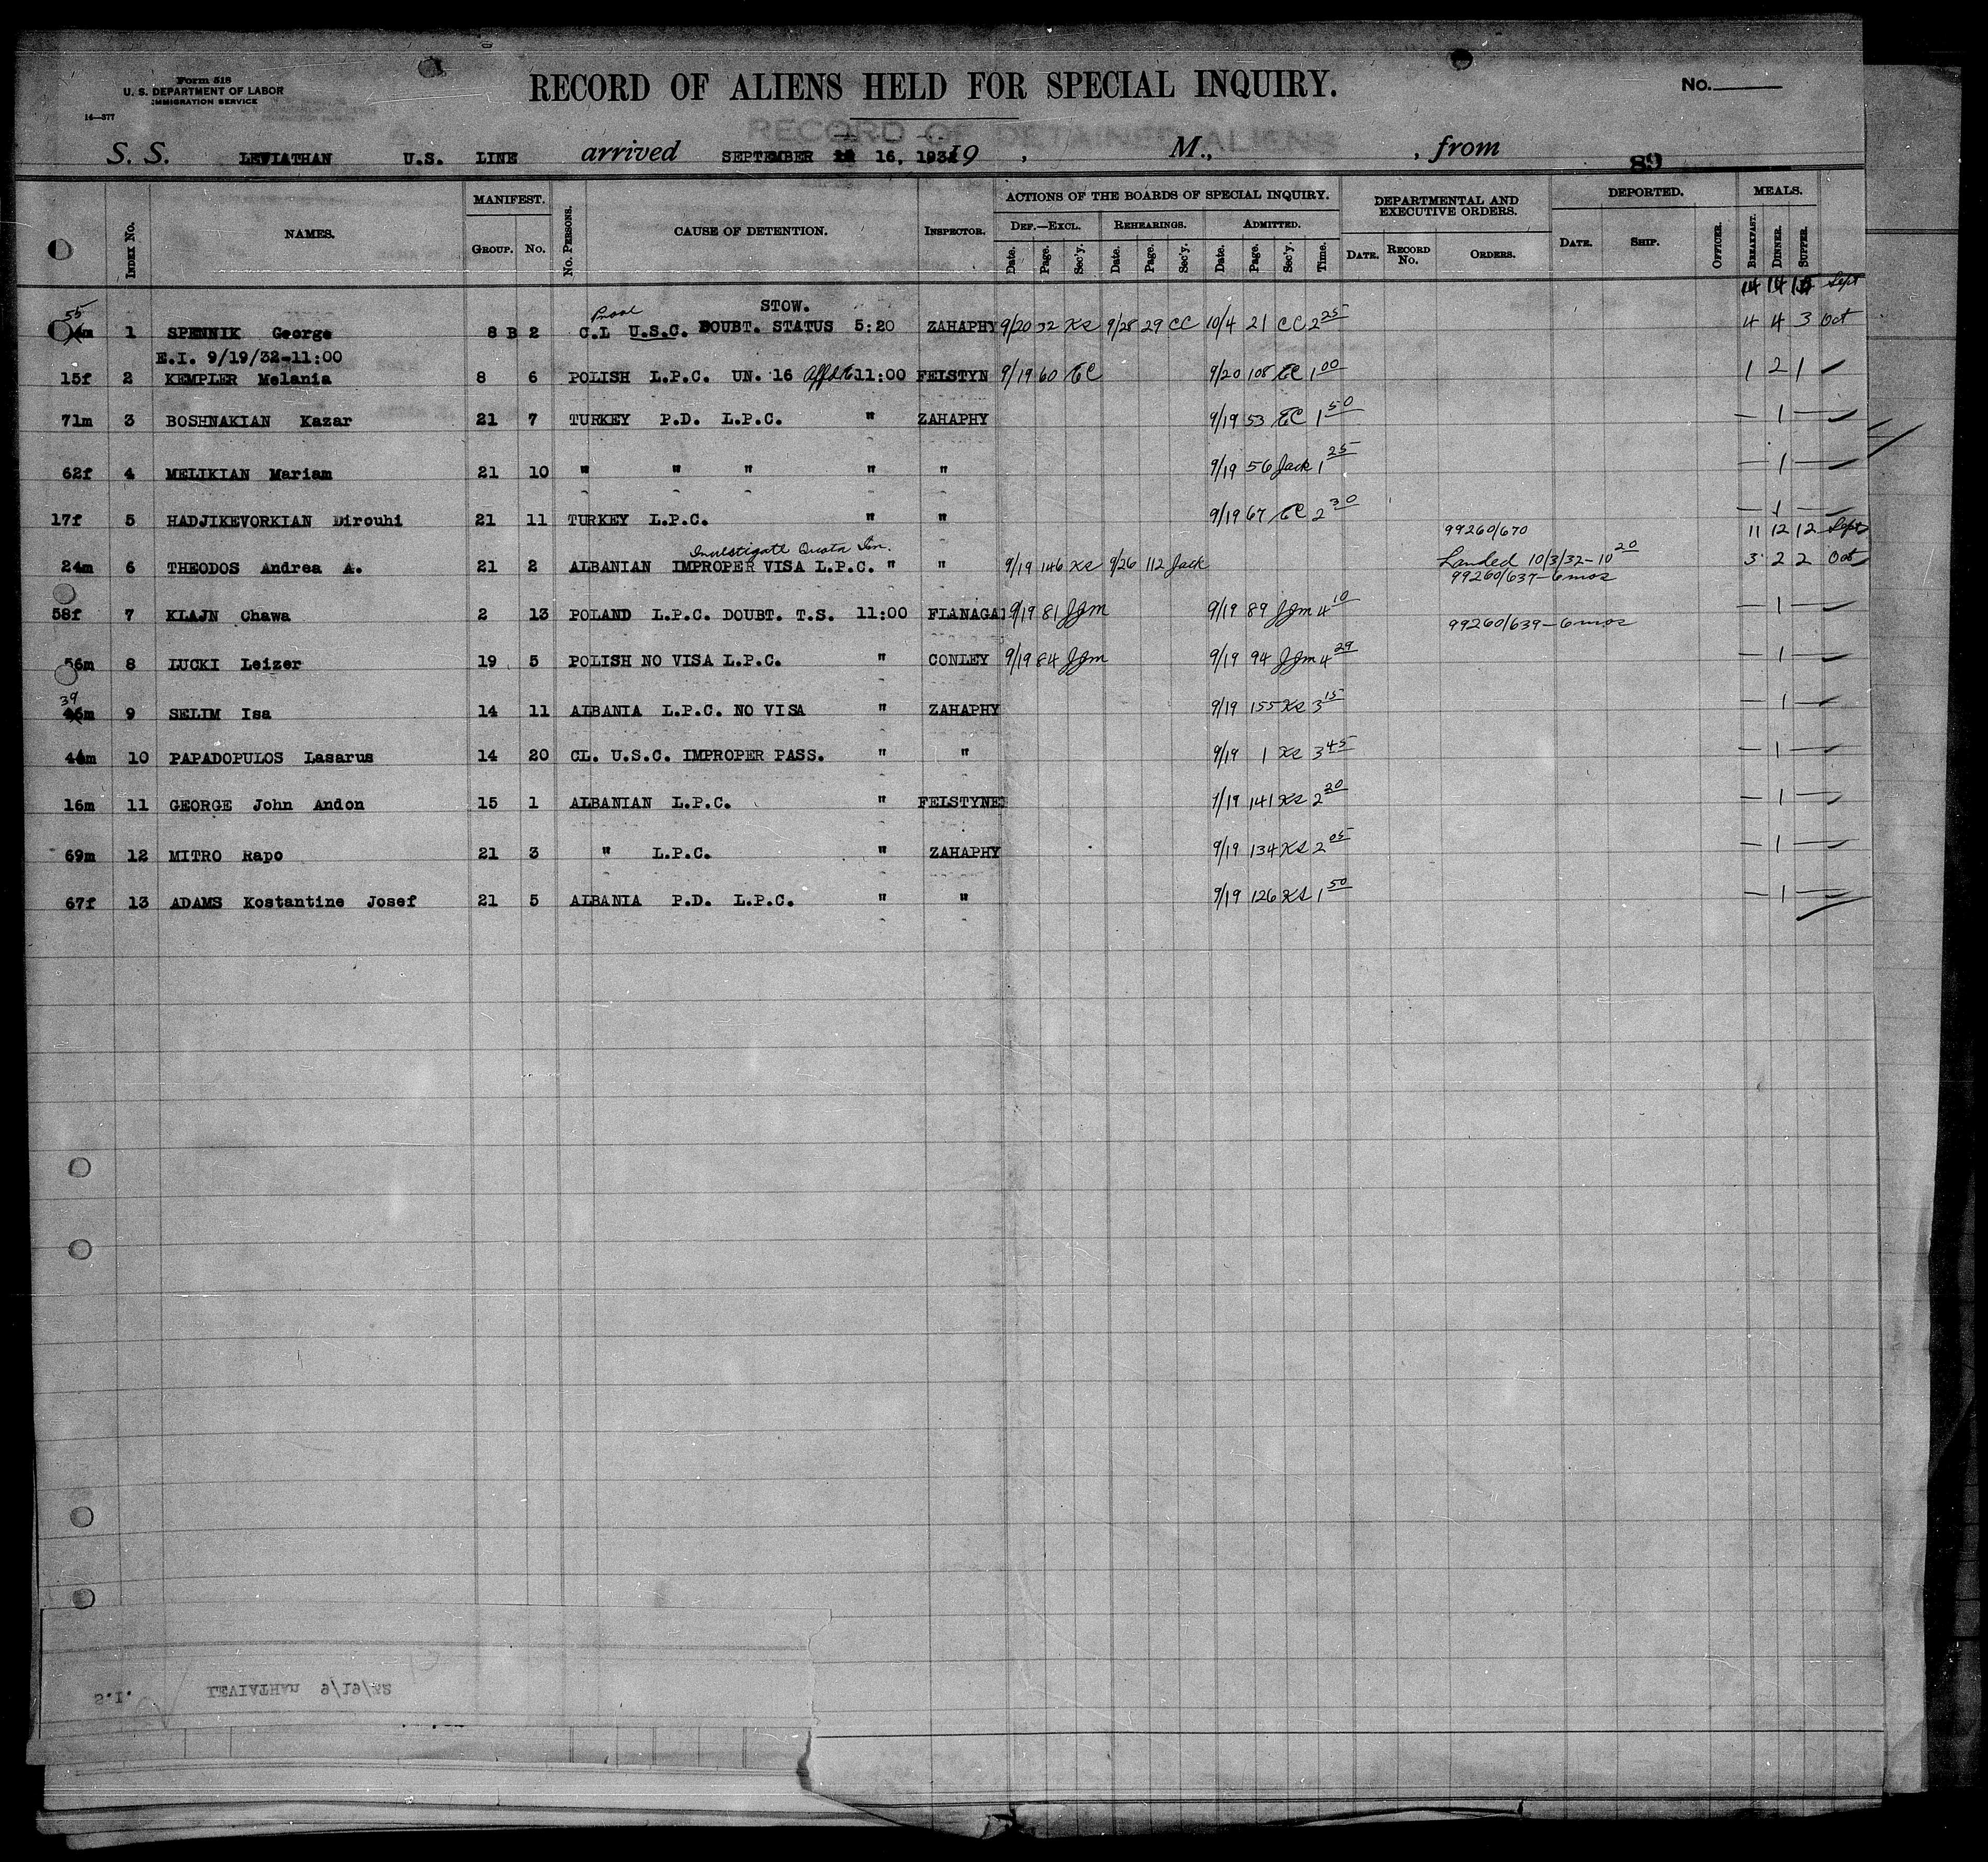 Form 518
U. S. DEPARTMENT OF LABOR
IMMIGRATION SERVICE
14—577
RECORD OF ALIENS HELD FOR SPECIAL INQUIRY.
No.
RECORD OF DETAINED ALIENS
S. S. LEVIATHAN U.S. LINE arrived SEPTEMBER 16, 1932 19 , M., , from 89
INDEX No. NAMES. MANIFEST. GROUP. No. No. PERSONS. CAUSE OF DETENTION. INSPECTOR. ACTIONS OF THE BOARDS OF SPECIAL INQUIRY. DEF.—EXCL. Date. Page. Sec'y. REHEARINGS. Date. Page. Sec'y. ADMITTED. Date. Page. Sec'y. Time. DEPARTMENTAL AND EXECUTIVE ORDERS. DATE. RECORD No. ORDERS. DEPORTED. DATE. SHIP. OFFICER. MEALS. BREAKFAST. DINNER. SUPPER.
STOW. 14 14 Sept
55 Proof
1 SPENNIK George 8 B 2 C.L U.S.C. DOUBT. STATUS 5:20 ZAHAPHY 9/20 32 KS 9/28 29 CC 10/4 21 CC 2 25 4 4 3 Oct
E.I. 9/19/32-11:00
15f 2 KEMPLER Melania 8 6 POLISH L.P.C. UN. 16 11:00 FEISTYN 9/19 60 EC 9/20 108 EC 1 00 1 2 1
71m 3 BOSHNAKIAN Kazar 21 7 TURKEY P.D. L.P.C. " ZAHAPHY 9/19 53 EC 1 50 — 1 —
62f 4 MELIKIAN Mariam 21 10 " " " " " 9/19 56 Jack 1 25 — 1 —
17f 5 HADJIKEVORKIAN Dirouhi 21 11 TURKEY L.P.C. " " 9/19 67 EC 2 30 — 1 —
99260/670 11 12 12 Sept
Investigate Quota
24m 6 THEODOS Andrea A. 21 2 ALBANIAN IMPROPER VISA L.P.C. " " 9/19 146 KS 9/26 112 Jack Landed 10/3/32-10 20 3 2 2 Oct
99260/637-6mos
58f 7 KLAJN Chawa 2 13 POLAND L.P.C. DOUBT. T.S. 11:00 FLANAGA 9/19 81 JJM 9/19 89 JJM 4 10 — 1 —
99260/639-6mos
56m 8 LUCKI Leizer 19 5 POLISH NO VISA L.P.C. " CONLEY 9/19 84 JJM 9/19 94 JJM 4 29 — 1 —
39
46m 9 SELIM Isa 14 11 ALBANIA L.P.C. NO VISA " ZAHAPHY 9/19 155 KS 3 15 — 1 —
44m 10 PAPADOPULOS Lasarus 14 20 CL. U.S.C. IMPROPER PASS. " " 9/19 1 KS 3 45 — 1 —
16m 11 GEORGE John Andon 15 1 ALBANIAN L.P.C. " FEISTYNE 9/19 141 KS 2 20 — 1 —
69m 12 MITRO Rapo 21 3 " L.P.C. " ZAHAPHY 9/19 134 KS 2 05 — 1 —
67f 13 ADAMS Kostantine Josef 21 5 ALBANIA P.D. L.P.C. " " 9/19 126 KS 1 50 — 1 —
S.I. LEVIATHAN 9/16/32